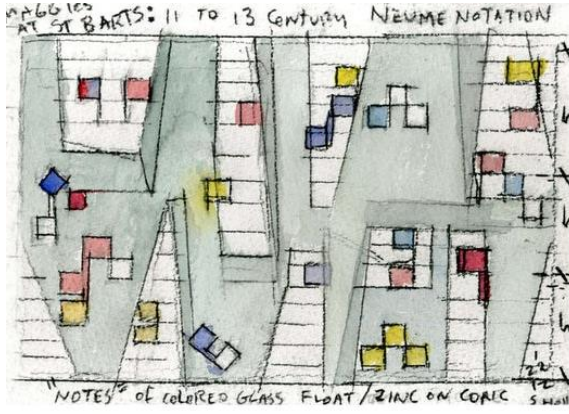 MAGGIES
AT ST BARTS: 11 TO 13 CENTURY NEUME NOTATION
"NOTES" OF COLORED GLASS FLOAT/ZINC ON CORIC